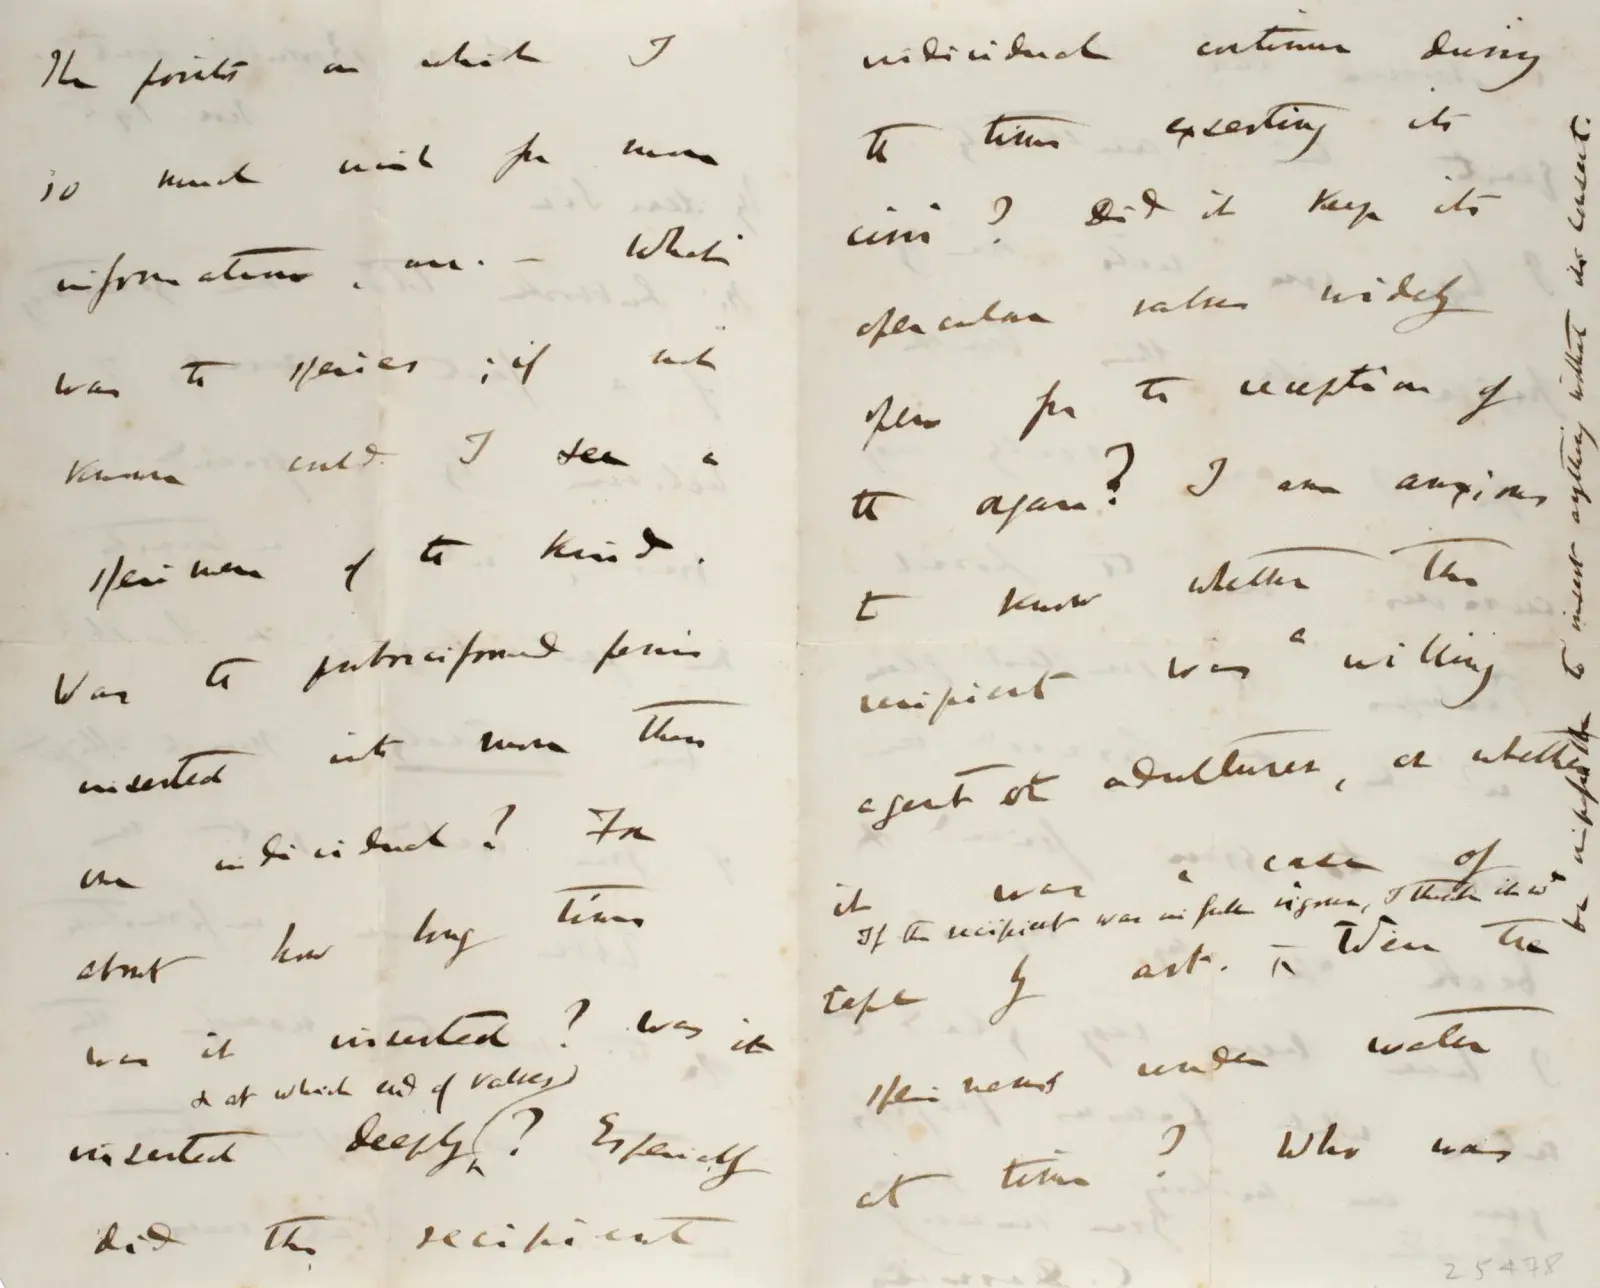 The points on which I
so much wish for more
information, are. — What
was the species; if not
known could I see a
specimen of the kind.
Was the probosciformed penis
inserted into more than
one individual? For
about how long time
was it inserted? Was it
& at which end of valves)
inserted deeply? Especially
did the recipient
individual continue during
the time exserting its
cirri? Did it keep its
opercular valves widely
open for the reception of
the organ? I am anxious
to know whether the
recipient was a willing
agent or adulturer, or whether
it was a case of
If the recipient was in full vigour, I think it wd
be impossible to insert anything without its consent.
rape by art. Were the
specimens under water
at time? Who was
25478